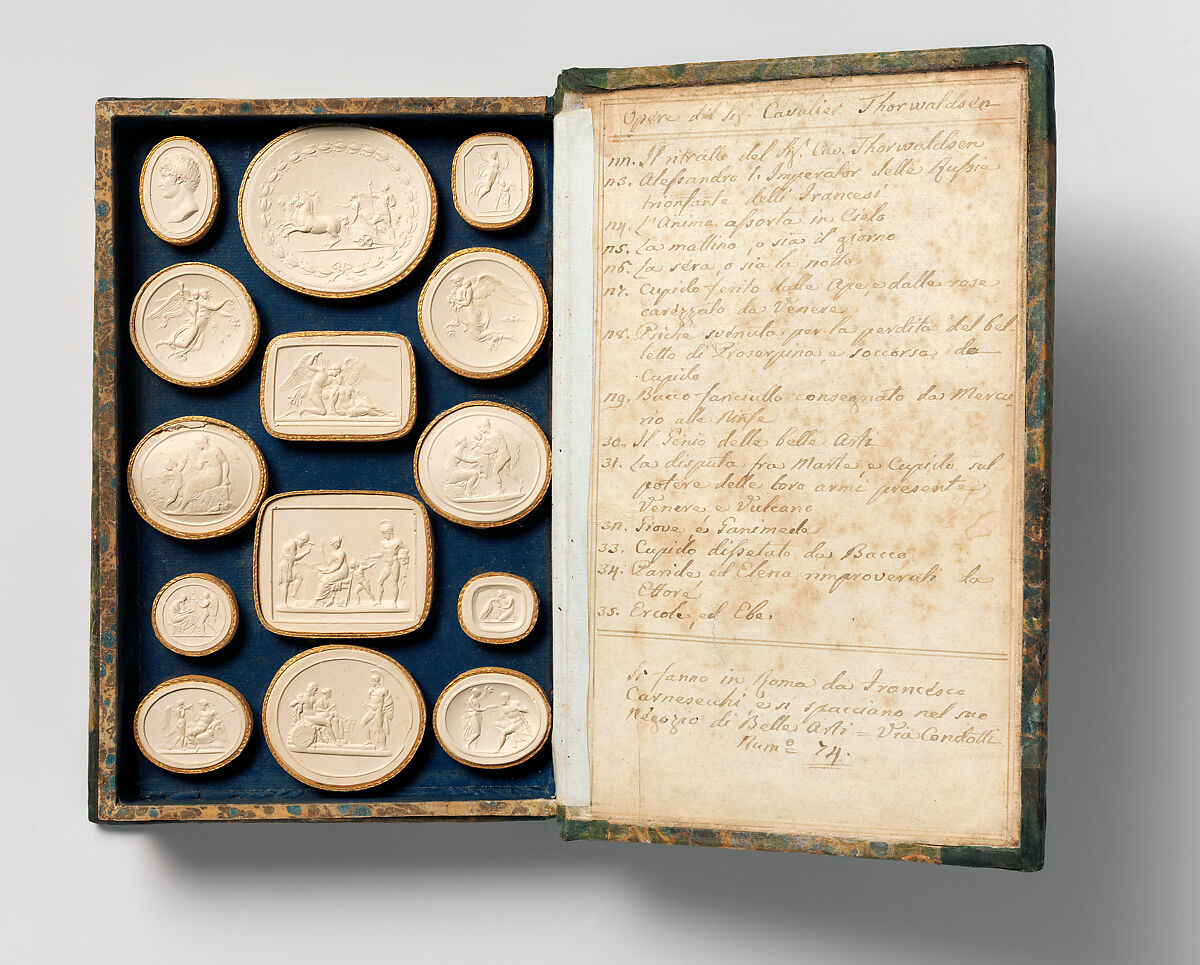 Opere del Sig. Cavalier Thorwaldsen
nn. Il ritratto del Sig. Cav. Thorwaldsen
n3. Alessandro I. Imperator delle Russie
trionfante delli Francesi
n4. L'Anima assorta in Cielo
n5. La mattina, o sia il giorno
n6. La sera, o sia la notte
n7. Cupido ferito dalle Ape, e dalle rose
carezzato da Venere
n8. Psiche svenuta per la perdita del bel-
letto di Proserpina e soccorsa da
Cupido
n9. Bacco fanciullo consegnato da Mercu-
rio alle Ninfe
30. Il Genio delle belle Arti
31. La disputa fra Marte e Cupido sul
potere delle loro armi presente
Venere e Vulcano
3n. Giove é Ganimede
33. Cupido dissetato da Bacco
34. Paride ed Elena rimproverati da
Ettore
35. Ercole, ed Ebe
Si fanno in Roma da Francesco
Carnesecchi e si spacciano nel suo
Negozio di Belle Arti = Via Condotti
Num.º 74.